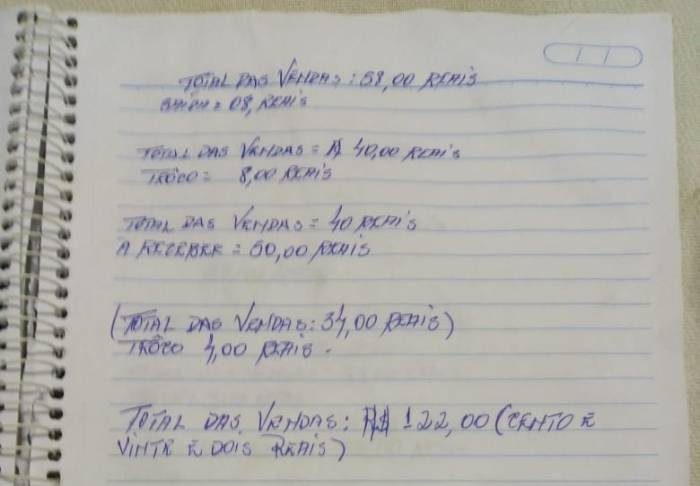 TOTAL DAS VENDAS: 58,00 REAIS
SAIDA = 08, REAIS
TOTAL DAS VENDAS = R$ 40,00 REAIS
TRÔCO = 8,00 REAIS
TOTAL DAS VENDAS = 40 REAIS
A RECEBER = 50,00 REAIS
(TOTAL DAS VENDAS: 34,00 REAIS)
TRÔCO 4,00 REAIS.
TOTAL DAS VENDAS: R$ 122,00 (CENTO E
VINTE E DOIS REAIS)